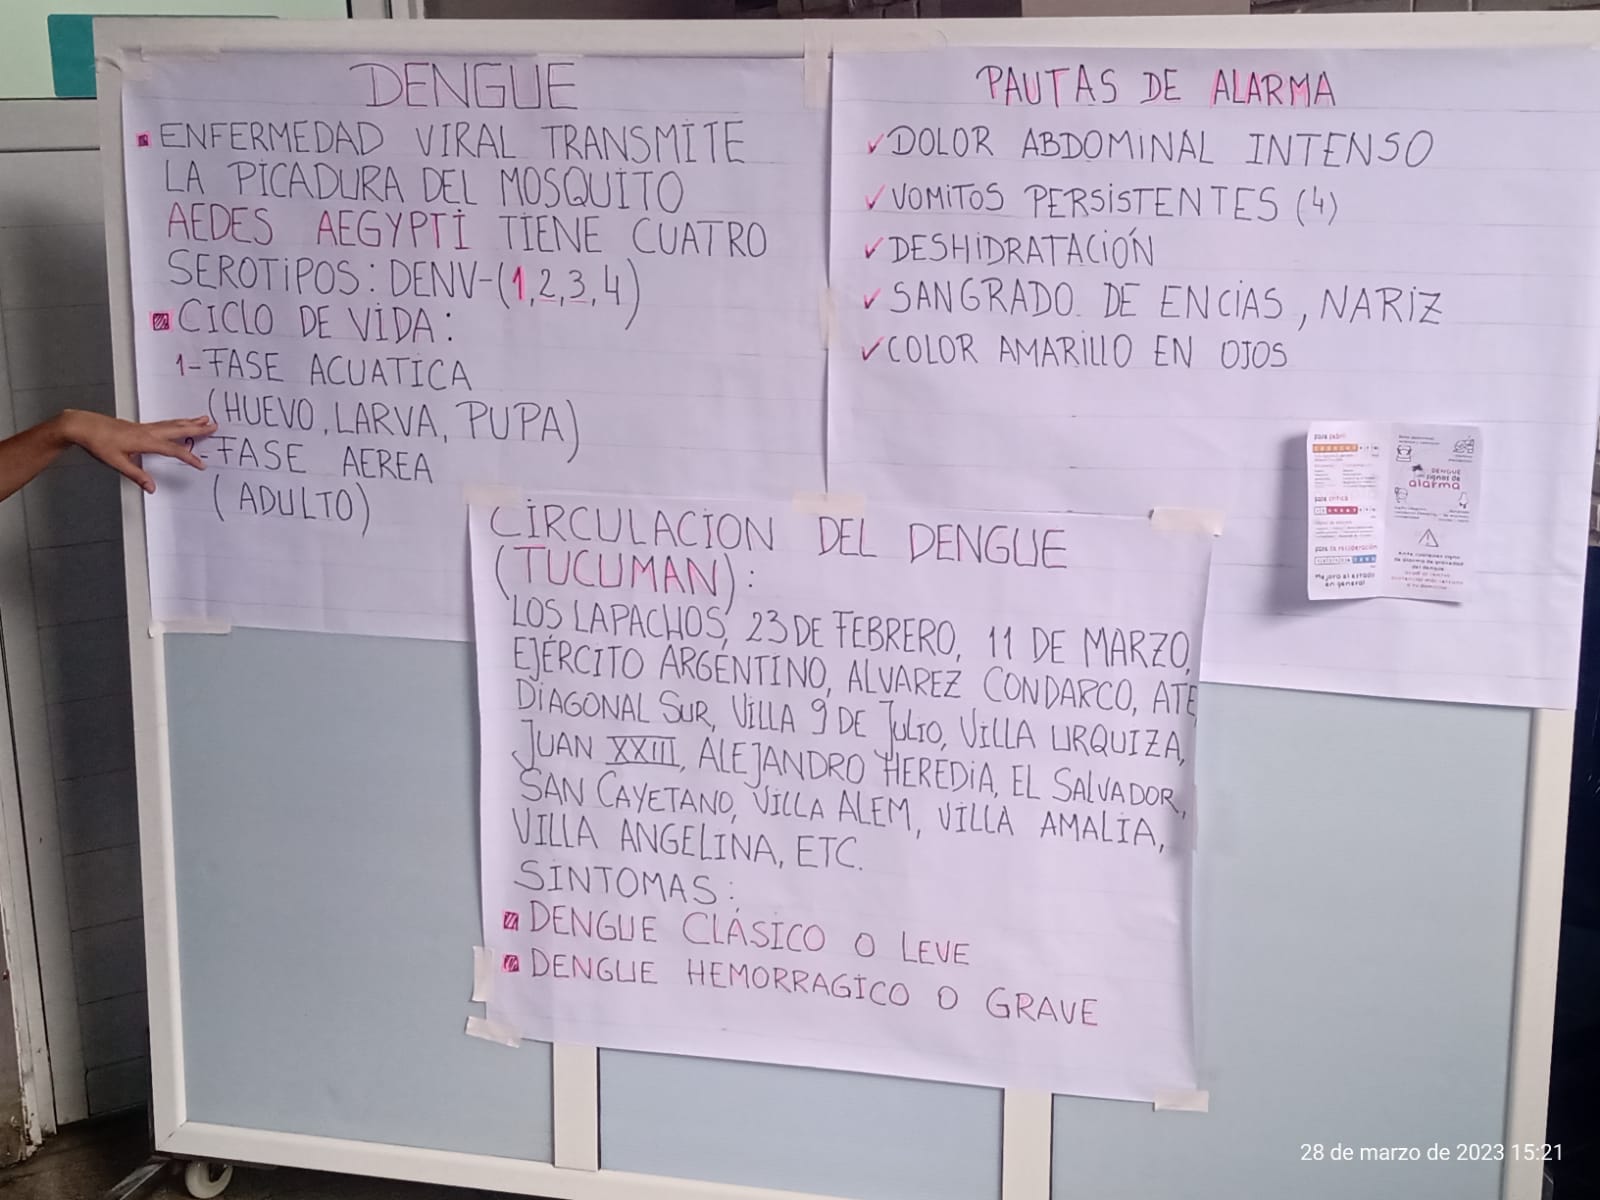 DENGUE
ENFERMEDAD VIRAL TRANSMITE
LA PICADURA DEL MOSQUITO
AEDES AEGYPTI TIENE CUATRO
SEROTIPOS: DENV-(1,2,3,4)
CICLO DE VIDA:
1-FASE ACUATICA
(HUEVO, LARVA, PUPA)
2-FASE AEREA
(ADULTO)
PAUTAS DE ALARMA
✓DOLOR ABDOMINAL INTENSO
✓VOMITOS PERSISTENTES (4)
✓DESHIDRATACIÓN
✓SANGRADO DE ENCIAS, NARIZ
✓COLOR AMARILLO EN OJOS
CIRCULACION DEL DENGUE
(TUCUMAN):
LOS LAPACHOS, 23 DE FEBRERO, 11 DE MARZO,
EJÉRCITO ARGENTINO, ALVAREZ CONDARCO, ATE,
DIAGONAL SUR, VILLA 9 DE JULIO, VILLA URQUIZA,
JUAN XXIII, ALEJANDRO HEREDIA, EL SALVADOR,
SAN CAYETANO, VILLA ALEM, VILLA AMALIA,
VILLA ANGELINA, ETC.
SINTOMAS:
DENGUE CLÁSICO O LEVE
DENGUE HEMORRAGICO O GRAVE
Fase crítica
Mejora el estado
en general
DENGUE
signos de
alarma
28 de marzo de 2023 15:21